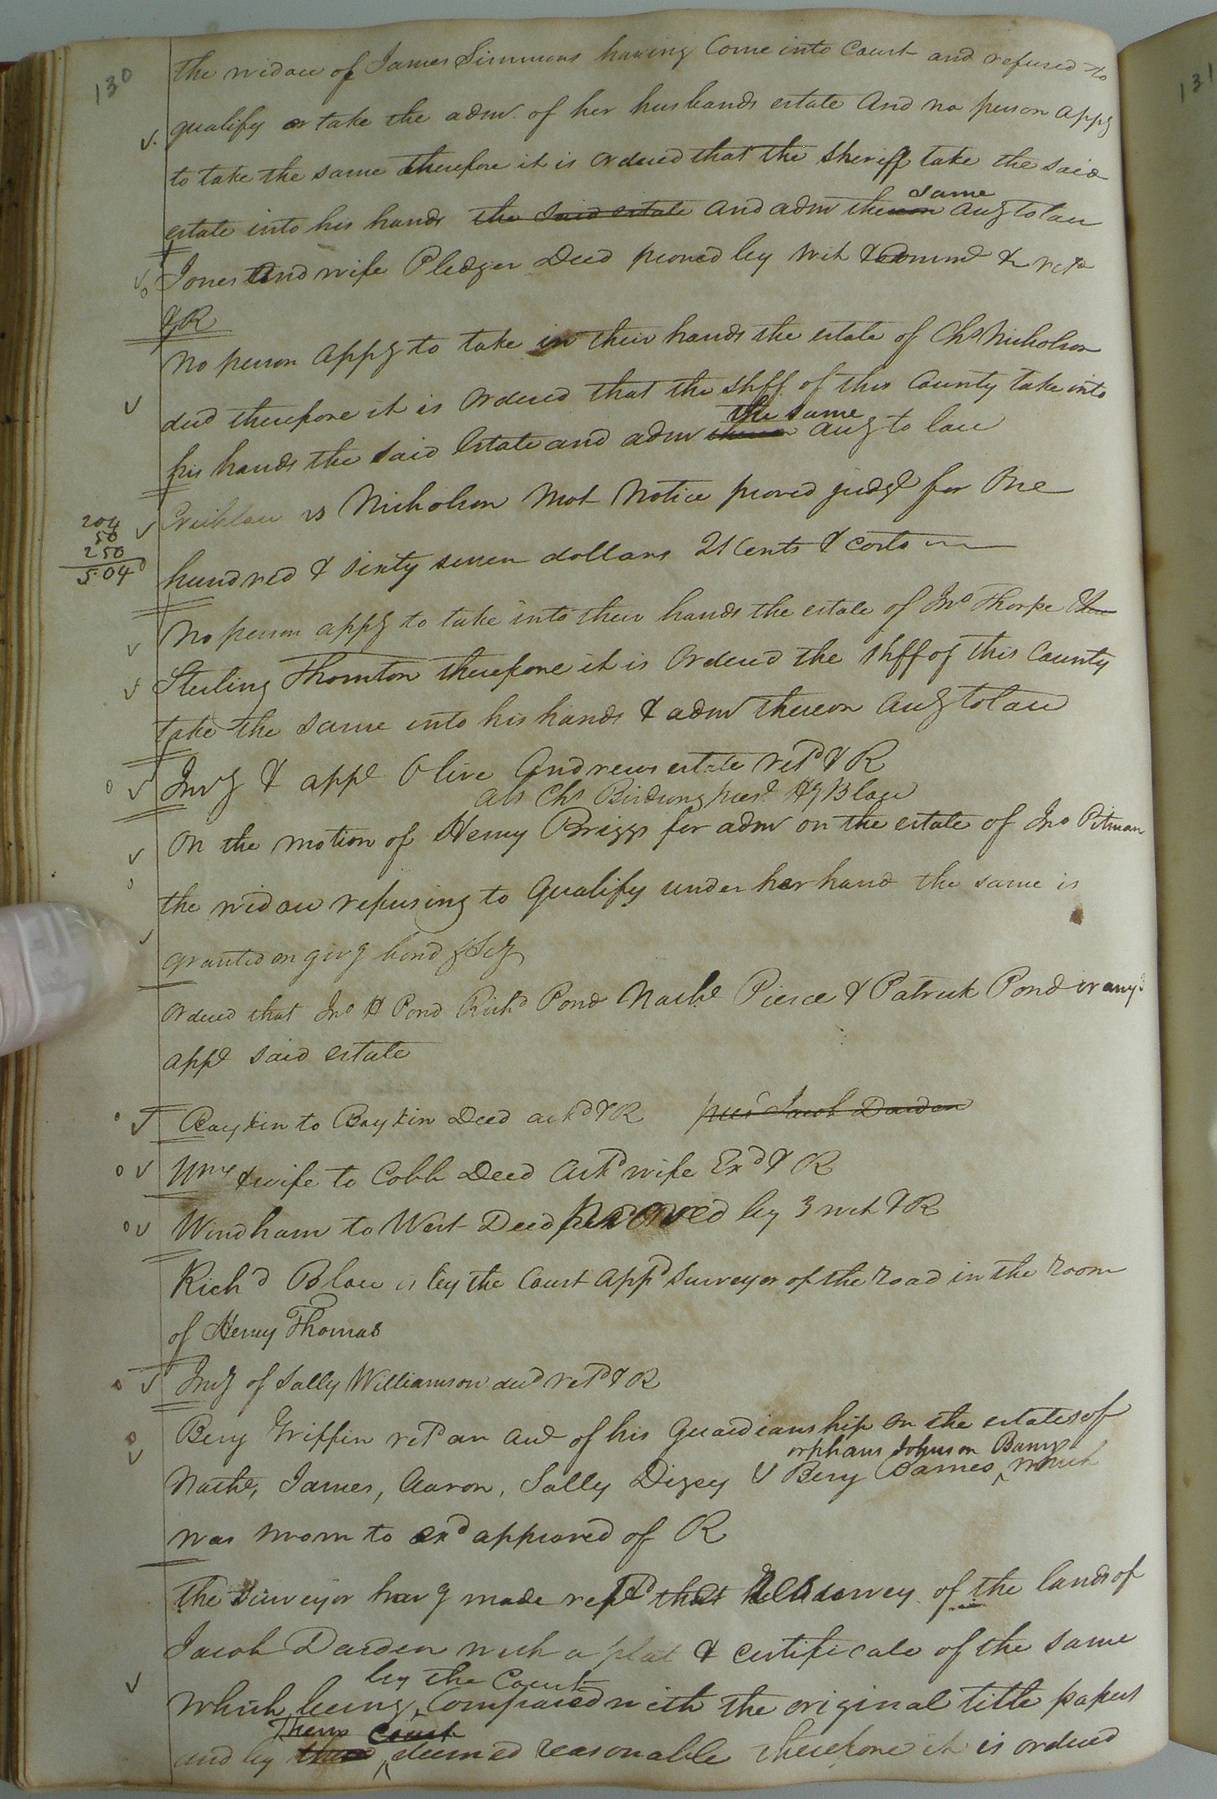 130
131
the widow of James Simmons having Come into Court and refused to
qualify or take the adm. of her husbands estate And no person appg
to take the same therefore it is ordered that the Sheriff take the said
same
estate into his hands the said estate and adm thereon aug to law
Jones and wife Pledger Deed proved by wit & Commd &
& R
No person appg to take in their hands the estate of Chs Nicholson
decd therefore it is ordered that the shff of this County take into
the same
his hands the said Estate and adm thereon aug to law
204
50
250
504
vs Nicholson Mot Notice proved judgt for One
hundred & sixty seven dollars 21 Cents & costs
No person appg to take into their hands the estate of Jno Thorpe &
Sterling Thornton therefore it is Ordered the shff of this County
take the same into his hands & adm thereon aug to law
Invy & appt Olive Andrews estate retd & R
abs Chs Birdsong prest Hy Blow
On the motion of Henry Briggs for adm on the estate of Jno Pitman
the widow refusing to Qualify under her hand the same is
granted on givg bond & Scy
ordered that Jno H Pond Richd Pond Nathl Pierce & Patrick Pond or any
appt said estate
Boykin to Boykin Deed ackd & R prest Jacob Darden
& wife to Cobb Deed Ackd wife Exd & R
Windham to West Deed proved by 3 wit & R
Richd Blow is by the Court appd Surveyor of the road in the room
of Henry Thomas
Invy of Sally Williamson decd retd & R
Benj Griffin retd an act of his guardianship on the estates of
orphans Johnson Barnes
Nathl, James, Aaron, Sally Dizey & Benj Barnes, which
was sworn to exd approved of R
The Surveyor havg made survey of the lands of
Jacob Darden with a plat & certificate of the same
by the Court
which being Compared with the original title papers
Court
and by deemed reasonable therefore it is ordered